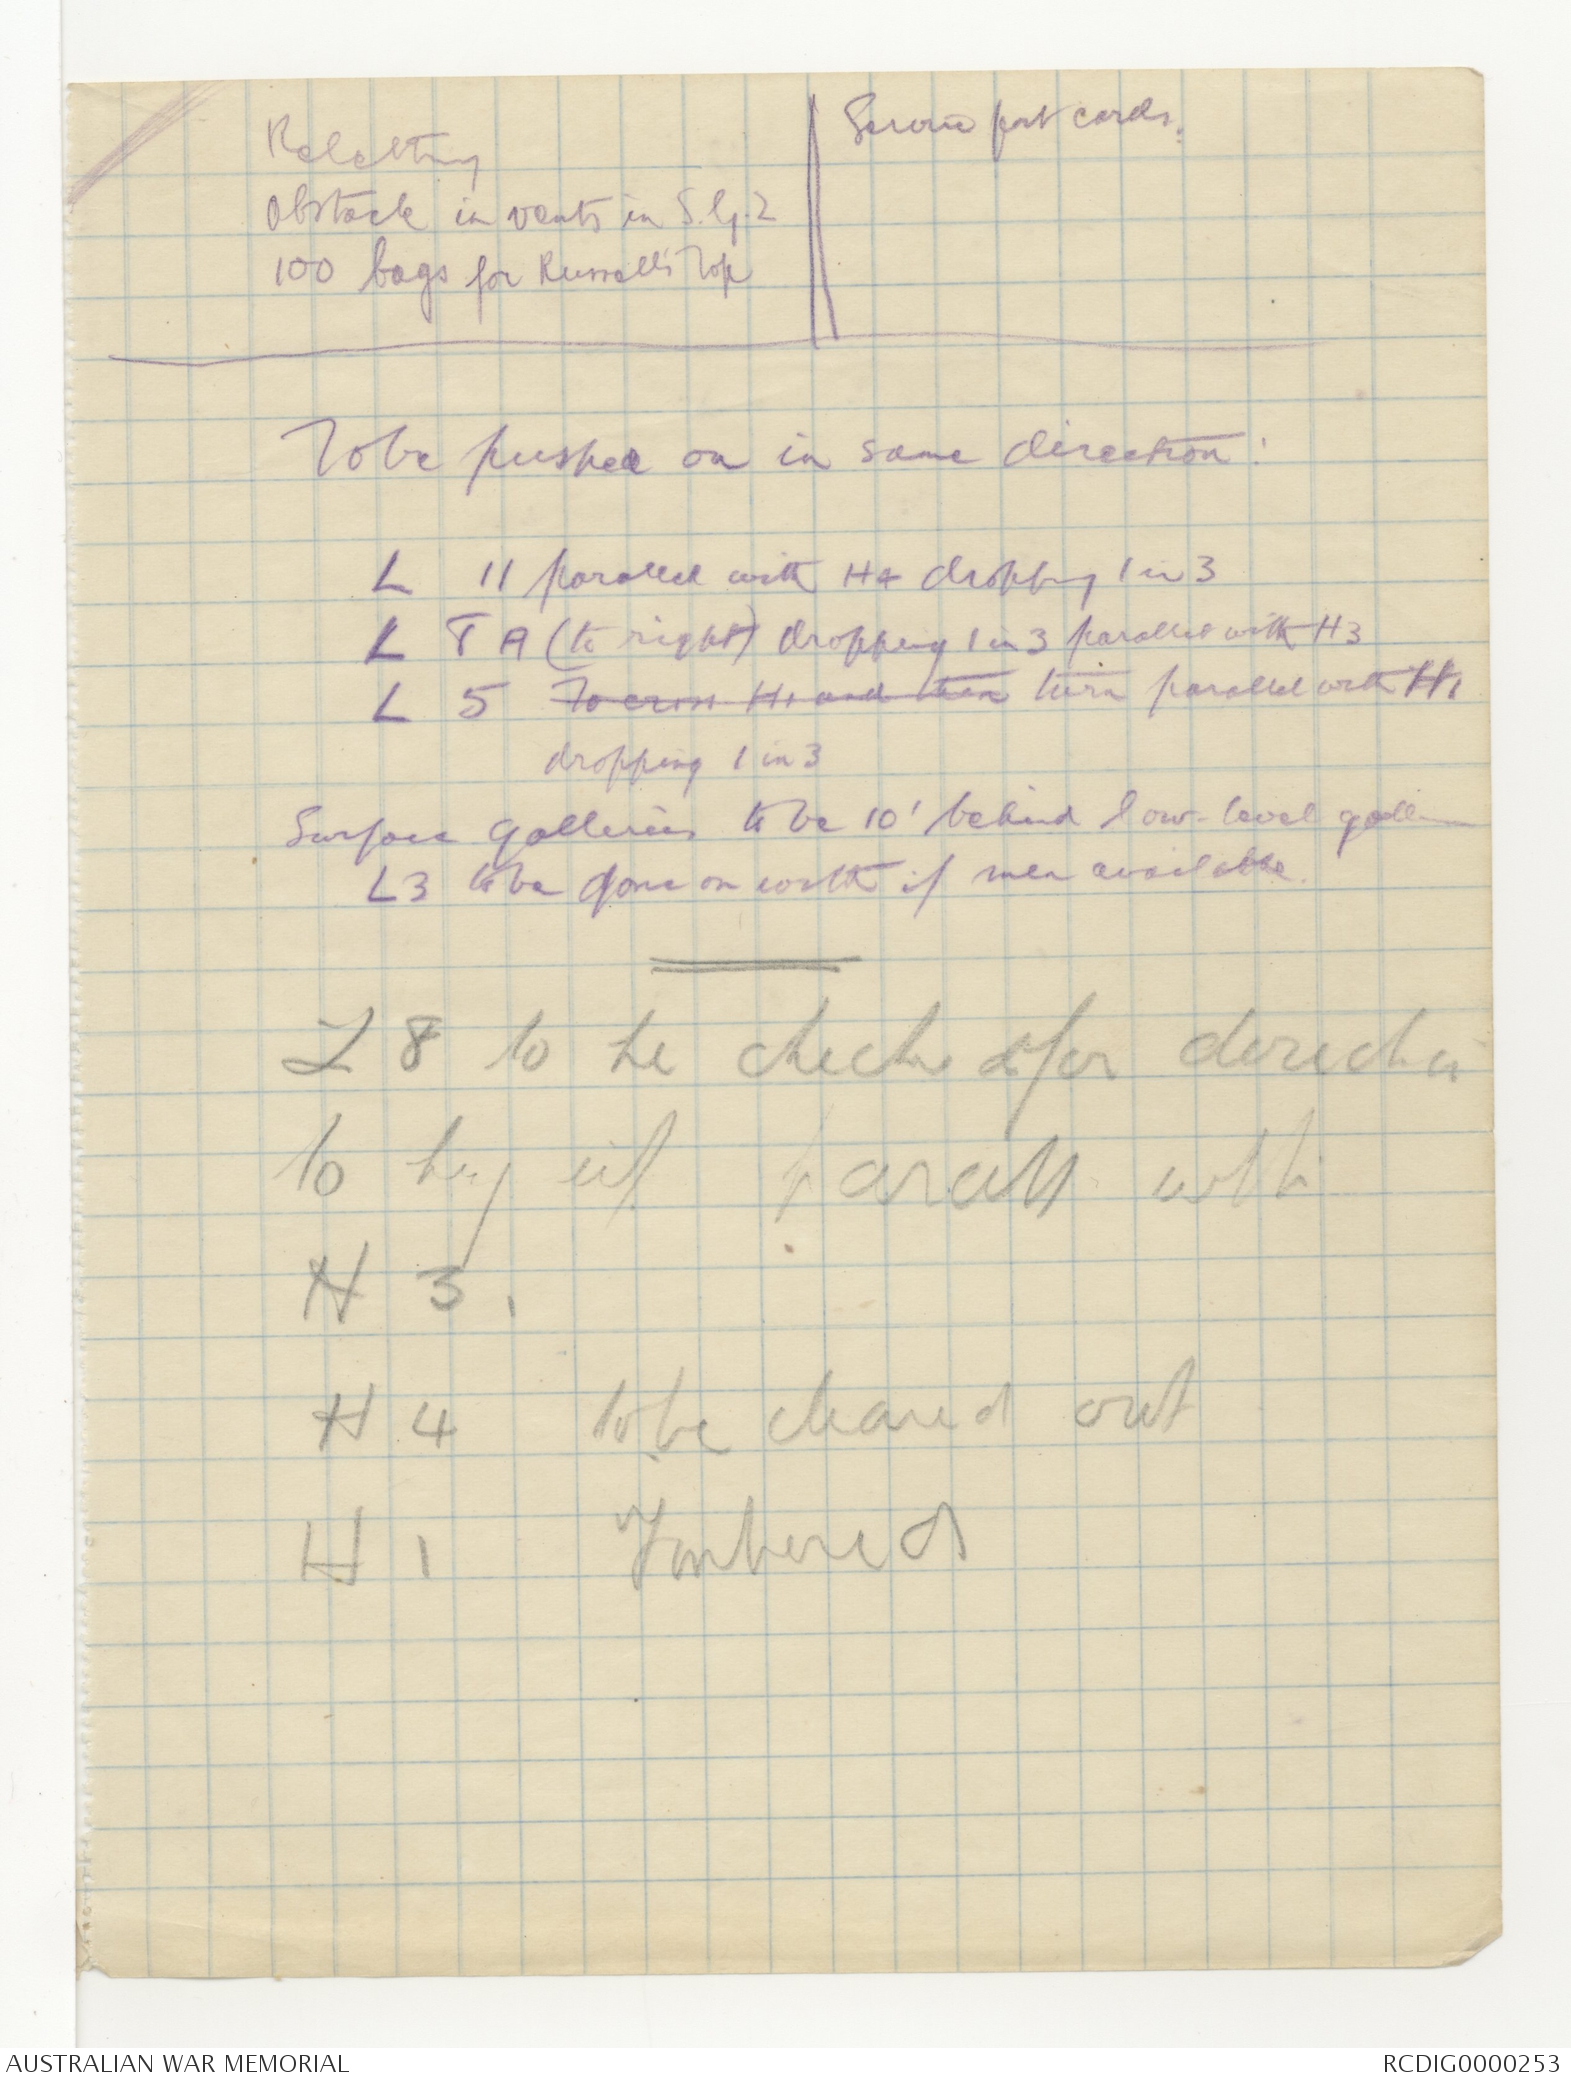 Obstacle in vents in S.G.2
100 bags for Russell's Top
Service post cards.
To be pushed on in same direction:
L 11 parallel with H4 dropping 1 in 3
L 8 A (to right) dropping 1 in 3 parallel with H3
L 5 To cross H1 and then turn parallel with H1
dropping 1 in 3
Surface galleries to be 10' behind low-level
L3 to be gone on with if men available.
L 8 to be checked for direction
to try it parall with
H 3.
H 4 to be cleared out
H 1 Timbered
AUSTRALIAN WAR MEMORIAL
RCDIG0000253